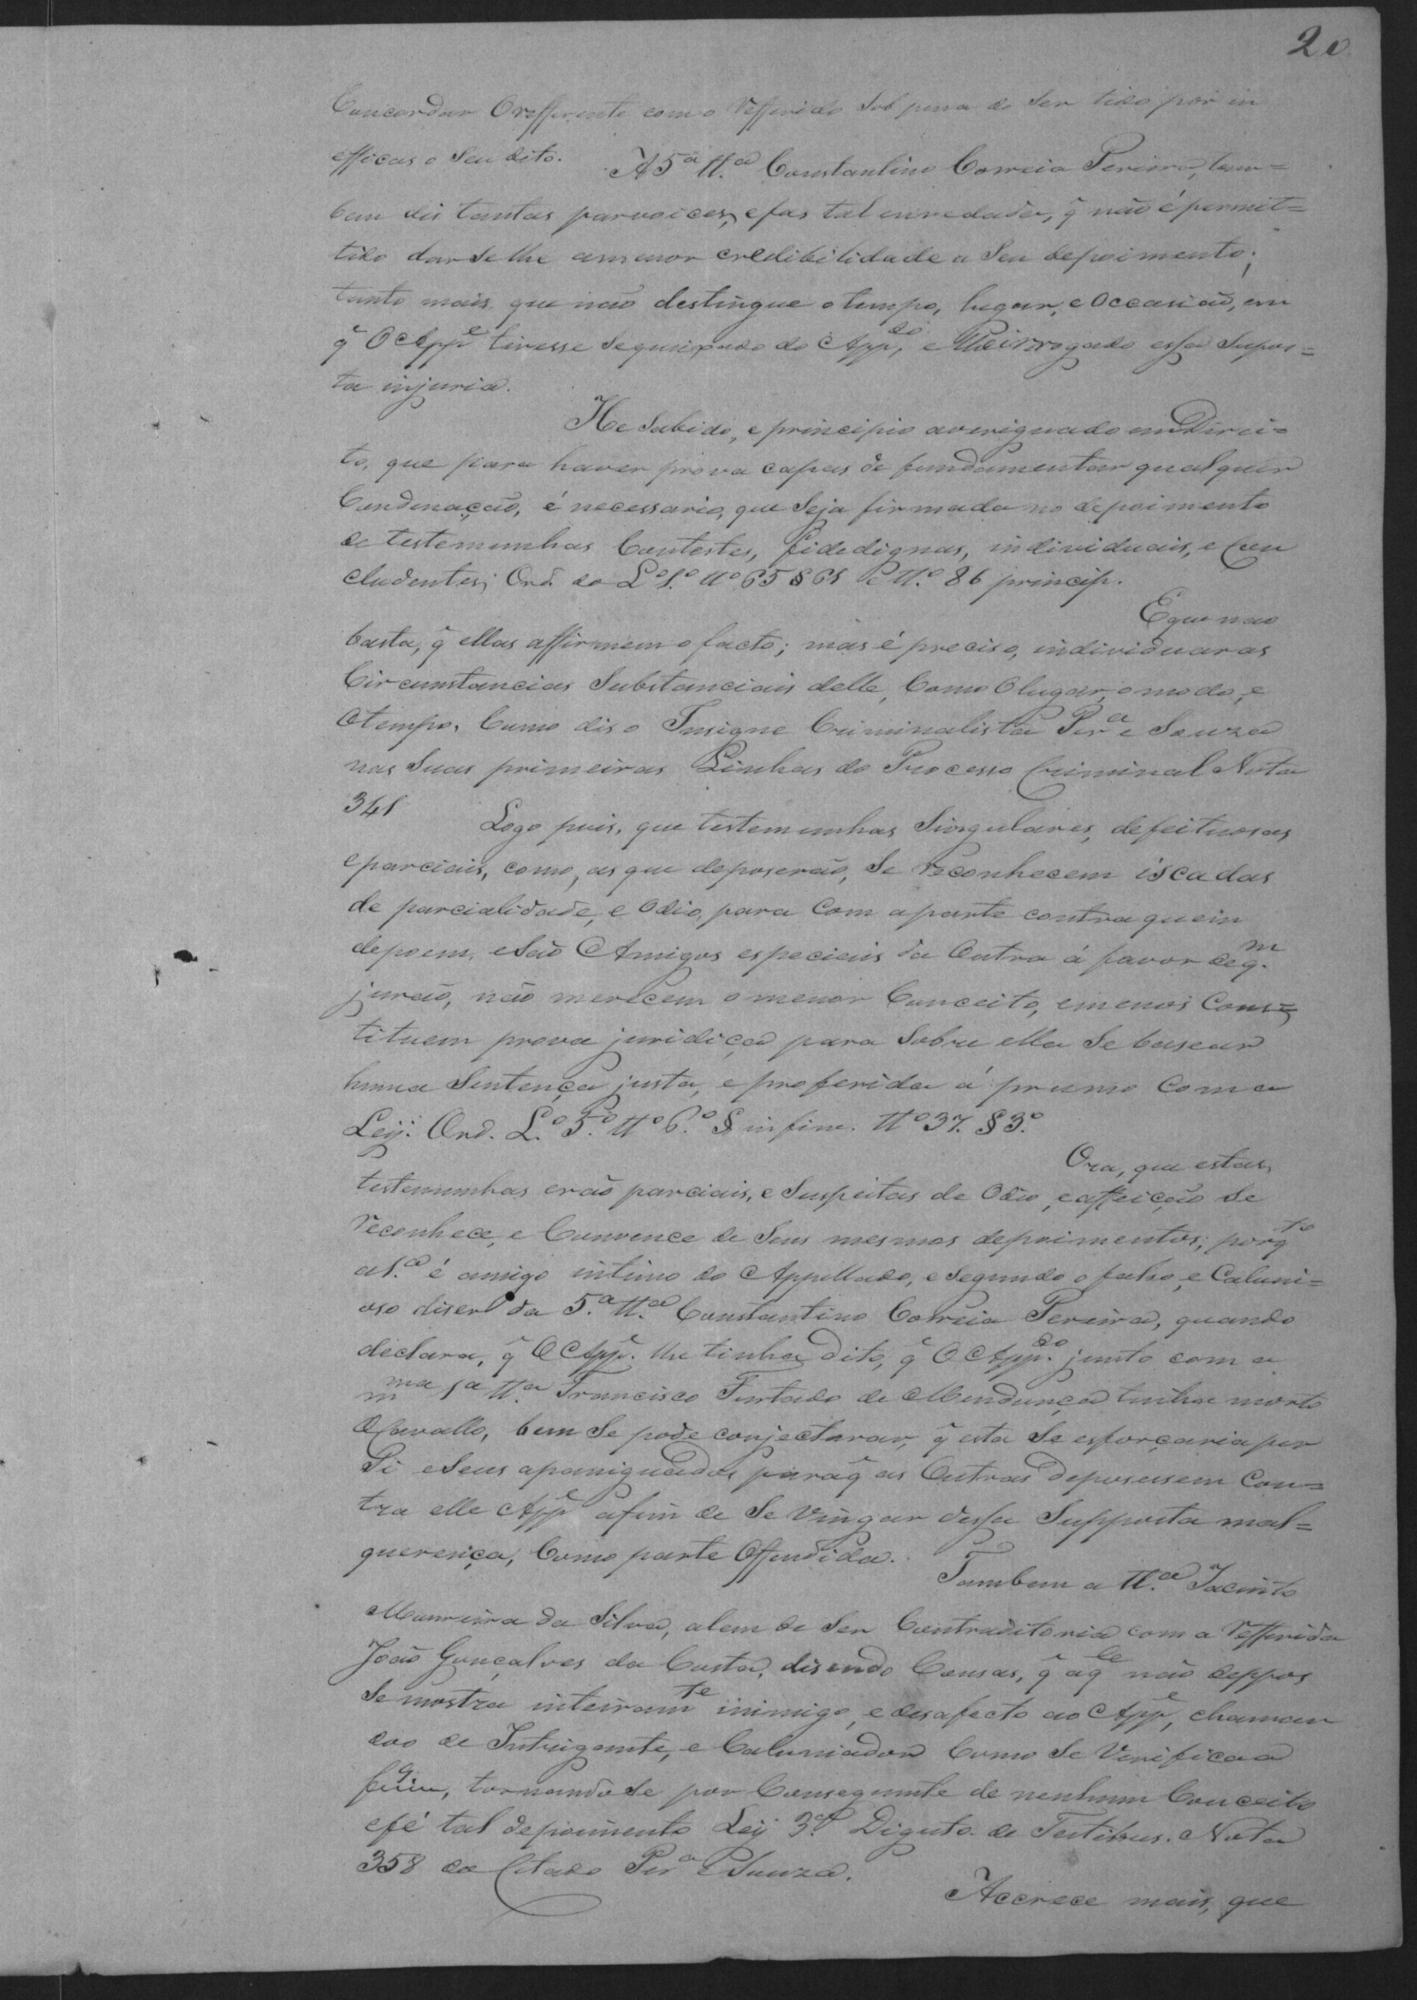 20
Concordar O refferente com o Refferido Sob pena de Ser tido por in
efficas o Seu dito.
A 5ª tt.ª Constantino Correia Pereira, tam=
bem dis tantas parvoices, e fas tal enredada, q̃ não é permit=
tido dar se lhe a menor credibilidade a Seu depoimento;
tanto mais que não destingue o tempo, lugar, e Occasião, em
q̃ O App.e tivesse Sequeixado do App.do, e irrogado essa Supos=
ta injuria.
He Sabido, e principio averiguado em Direi=
to, que para haver prova capas de fundamentar qualquer
Condenação, é necessario, que Seja firmada no depoimento
de testemunhas Contestes, fidedignas, individuais, e Con
cludentes; Ord. do L.º 1.º tt.º 65 § 65 e tt.º 86 princip.
E que não
basta, q̃ ellas affirmem o facto; mas é preciso, individuar as
Circumstancias Substanciais delle, Como O lugar, o modo, e
O tempo, Como dis o Insigne Criminalista Per.ª e Souza
nas Suas primeiras Linhas do Processo Criminal Nota
341
Logo pois, que testemunhas Singulares, defeituosas
e parciais, como, as que deposerão, Se reconhecem iscadas
de parcialidade, e Odio, para Com a parte contra quem
depoem, e São Amigos especiais da Outra á favor de q.m
jurão, não merecem o menor Conceito, e menos Cons=
tituem prova juridica para Sobre ella Se basear
huma Sentença justa, e proferida á prumo Com a
Ley. Ord. L.º 5.º tt.º 6.º § in fine. tt.º 37. § 3.º
Ora, que estas
testemunhas erão parciais, e Suspeitas de Odio, e affeição Se
reconhece, e Convence de Seus mesmos depoimentos; porq.to
a 1.ª é amigo intimo do Appellado, e Segundo o falso, e Caluni=
oso diser da 5.ª tt.ª Constantino Correia Pereira, quando
declara, q̃ O App.e lhe tinha dito, q̃ O App.do junto com a
m.ma 1ª tt.ª Francisco Furtado de Mendonça tinha morto
O Cavallo, bem Se pode conjecturar, q̃ esta Se esforçaria por
Si e Seus apaniguados para q̃ as Outras deposessem Con=
tra elle App.e afim de Se vingar dessa Supposta mal=
querença, Como parte Offendida.
Tambem a tt.ª Jacinto
Moureira da Silva, alem de Ser Contraditoria com a Refferida
João Gonçalves da Costa, disendo Cousas, q̃ aq.le não deppos
Se mostra inteiram.te inimigo, e desafecto ao App.e, chaman
doo de Intrigante, e Caluniador Como Se Verifica a
f, tornandose por Conseguinte de nenhum Conceito
e fé tal depoimento Ley 3.ª Digesto de Testibus. Nota
358 do Citado Per.ª e Souza.
Accrece mais, que